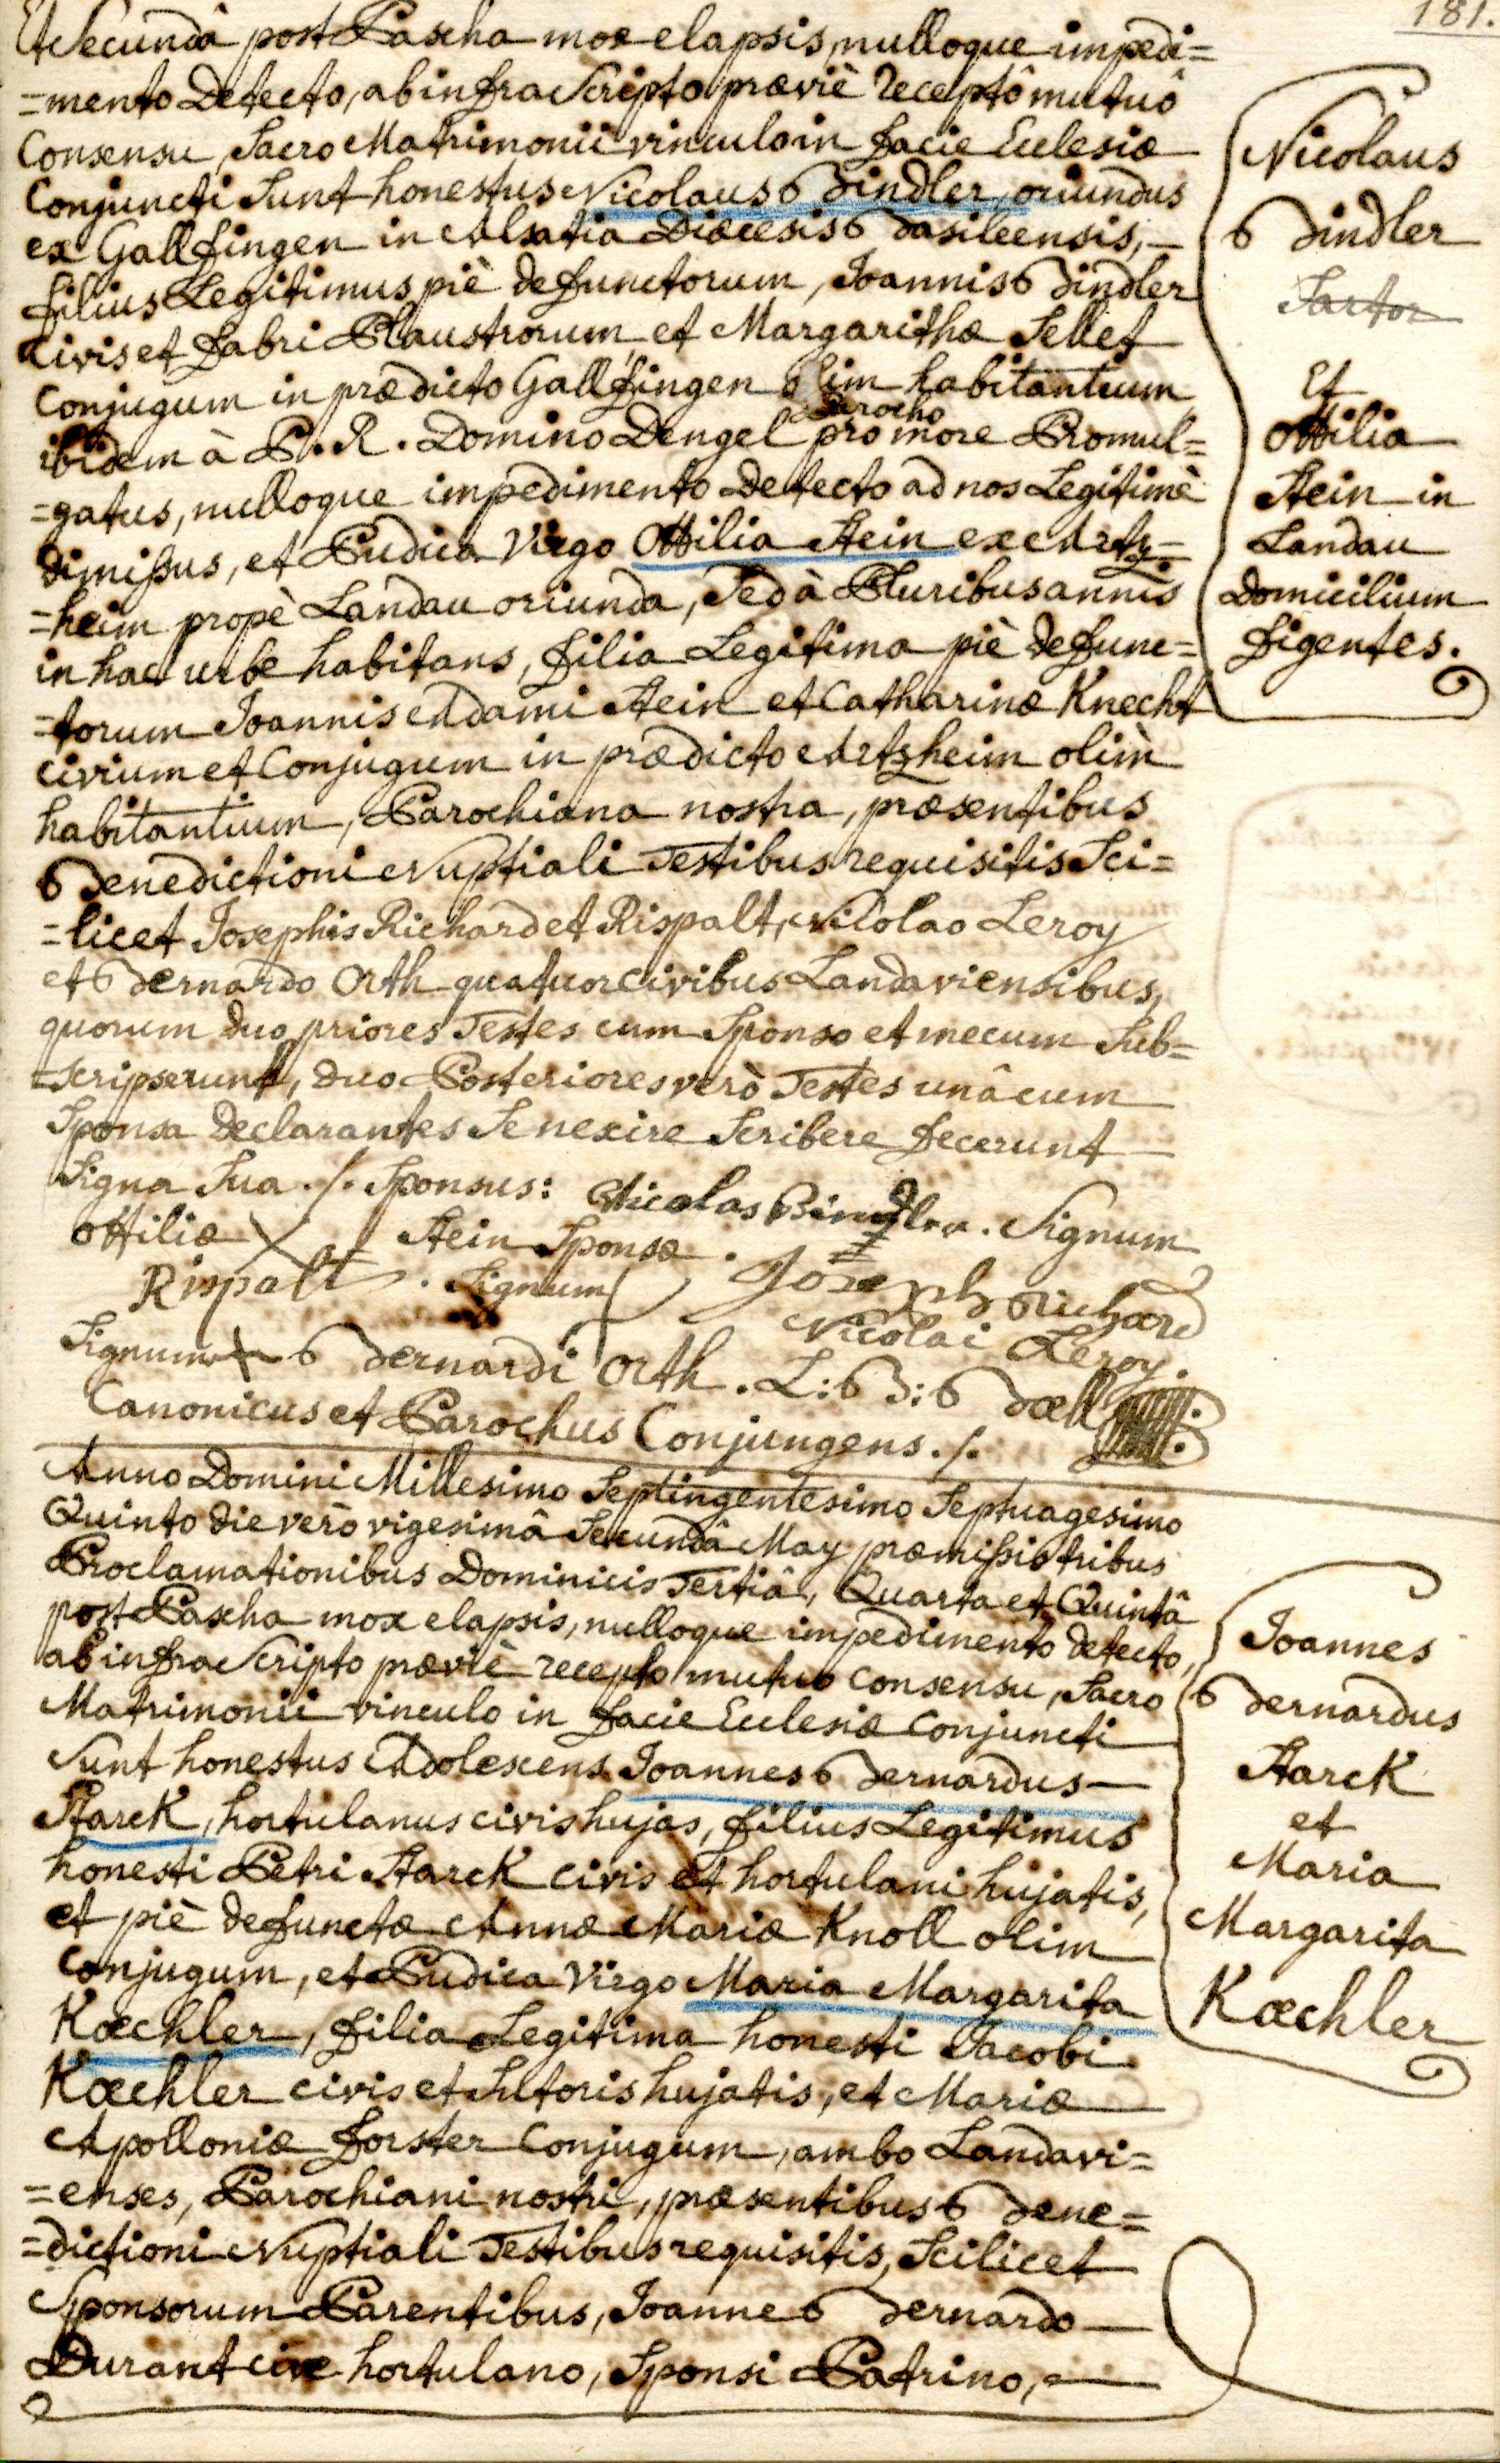 181.
Et Secundâ post Pascha mox elapsis, nulloque impedi=
=mento Detecto, ab infra Scripto præviè receptô mutuô
Consensu, Sacro Matrimonii vinculo in facie Ecclesiæ
Conjuncti Sunt honestus Nicolaus Bindler, oriundus
ex Gallfingen in Alsatia Diœcesis Basileensis,
filius Legitimus piè defunctorum, Joannis Bindler
Civis et fabri Plaustrorum et Margarithæ Sellet
Conjugum in prædicto Gallfingen olim habitantium,
Parocho
ibidem à P. R. Domino Dengel pro more Promul=
=gatus, nulloque impedimento Detecto ad nos Legitimè
Dimissus, et Pudica Virgo Ottilia Stein ex Artz=
=heim propè Landau oriunda, Sed à Pluribus annis
in hac urbe habitans, filia Legitima piè defunc=
=torum Joannis Adami Stein et Catharinæ Knecht
civium et Conjugum in prædicto Artzheim olim
habitantium, Parochiana nostra, præsentibus
Benedictioni Nuptiali Testibus requisitis Sci=
=licet Josephis Richard et Rispalt, Nicolao Leroy
et Bernardo Orth quatuor civibus Landaviensibus,
quorum duo priores Testes cum Sponso et mecum Sub=
=scripserunt, duo Posteriores verò Testes unâ cum
Sponsa Declarantes Se nescire Scribere fecerunt
Signa Sua ./. Sponsus: Nicolas Bindler. Signum
Ottiliæ X Stein Sponsæ. Joseph Richard
Rispalt. Signum Nicolai Leroy.
Signum Bernardi Orth. L: B: Bœll
Canonicus et Parochus Conjungens ./.
Nicolaus
Bindler
Sartor
Et
Ottilia
Stein in
Landau
Domicilium
figentes.
Anno Domini Millesimo Septingentesimo Septuagesimo
Quinto die verò vigesimâ Secundâ May præmissis tribus
Proclamationibus Dominicis Tertiâ, Quarta et Quintâ
post Pascha mox elapsis, nulloque impedimento detecto,
ab infra Scripto præviè recepto mutuo consensu, Sacro
Matrimonii vinculo in facie Ecclesiæ Conjuncti
Sunt honestus Adolescens Joannes Bernardus
Starck, hortulanus civis hujas, filius Legitimus
honesti Petri Starck civis et hortulani hujatis,
et piè defunctæ Annæ Mariæ Knoll olim
Conjugum, et Pudica Virgo Maria Margarita
Kœchler, filia Legitima honesti Jacobi
Kœchler civis et Sutoris hujatis, et Mariæ
Apolloniæ Forster Conjugum, ambo Landavi=
=enses, Parochiani nostri, præsentibus Bene=
=dictioni Nuptiali Testibus requisitis, Scilicet
Sponsorum Parentibus, Joanne Bernardo
Durant cive hortulano, Sponsi Patrino,
Joannes
Bernardus
Starck
et
Maria
Margarita
Kœchler